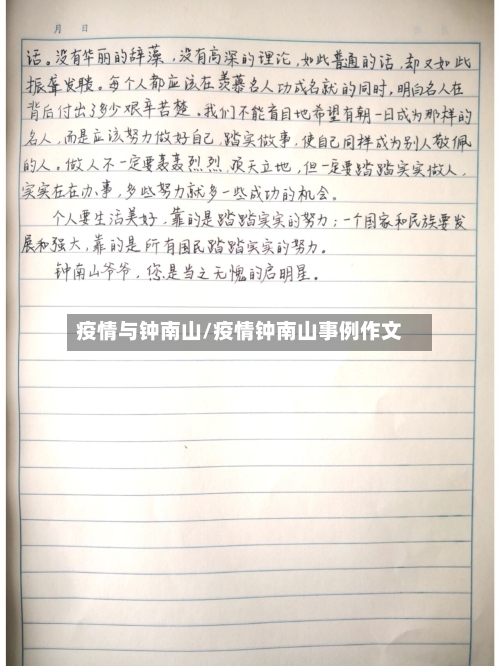 月 日
话。没有华丽的辞藻，没有高深的理论，如此普通的话，却又如此
振聋发聩。每个人都应该在羡慕名人功成名就的同时，明白名人在
背后付出了多少艰辛苦楚。我们不能盲目地希望有朝一日成为那样的
名人，而是应该努力做好自己，踏实做事，使自己同样成为别人敬佩
的人。做人不一定要轰轰烈烈，顶天立地，但一定要踏踏实实做人，
实实在在办事，多些努力就多一些成功的机会。
个人要生活美好，靠的是踏踏实实的努力；一个国家和民族要发
展和强大，靠的是所有国民踏踏实实的努力。
钟南山爷爷，您是当之无愧的启明星。
疫情与钟南山/疫情钟南山事例作文